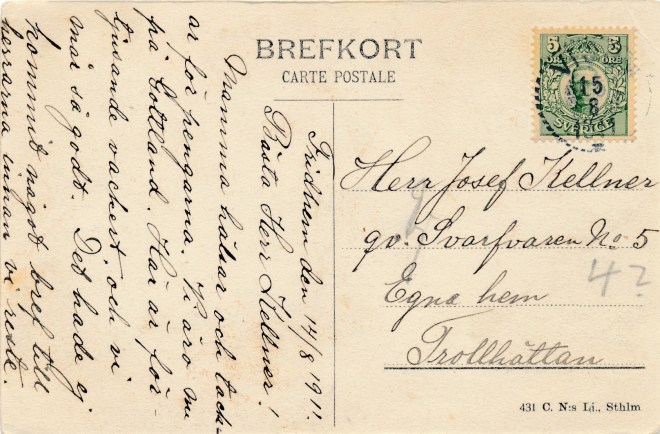 BREFKORT
CARTE POSTALE
Fridhem den 14/8 1911.
Bästa Herr Kellner!
Mamma hälsar och tack-
ar för pengarna. Vi äro nu
på Gottland. Här är för-
tjusande vackert, och vi
mår så godt. Det hade ej
kommit något bref till
herrarna innan vi reste.
5 5
ÖRE ÖRE
SVERIGE
15
8
Herr Josef Kellner
gv. Svarfvaren No 5
Egna hem
Trollhättan
4?
431 C. N:s Lj., Sthlm